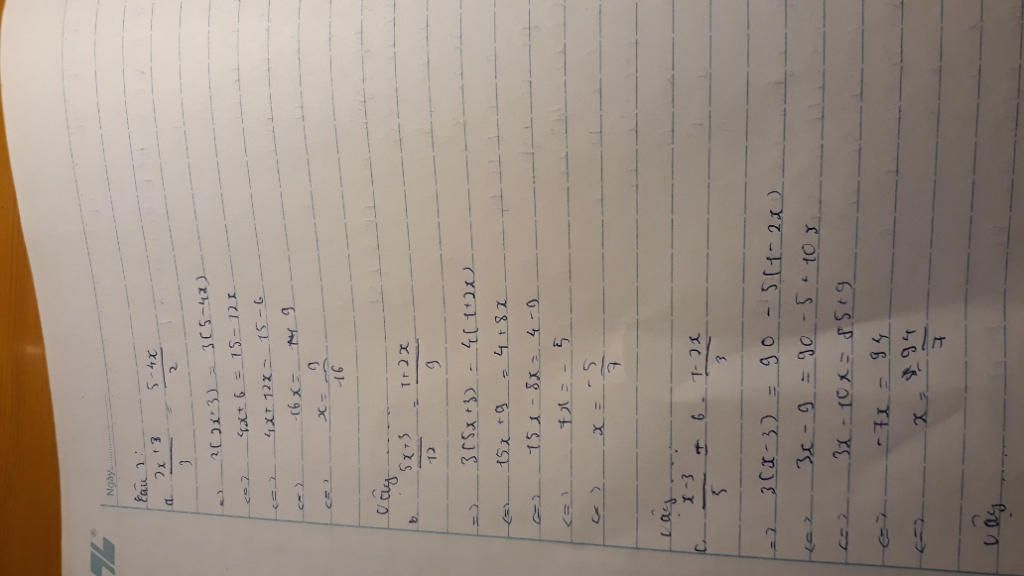 Ngày
Câu 2:
a. (2x+3)/3 = (5-4x)/2
=> 2(2x+3) = 3(5-4x)
<=> 4x+6 = 15-12x
<=> 4x+12x = 15-6
<=> 16x = 9
<=> x = 9/16
Vậy
b. (5x+3)/12 = (1+2x)/9
=> 3(5x+3) = 4(1+2x)
<=> 15x+9 = 4+8x
<=> 15x-8x = 4-9
<=> 7x = -5
<=> x = -5/7
Vậy
c. (x-3)/5 = 6 - (1-2x)/3
=> 3(x-3) = 90 - 5(1-2x)
<=> 3x-9 = 90-5+10x
<=> 3x-10x = 85+9
<=> -7x = 94
<=> x = 94/7
Vậy